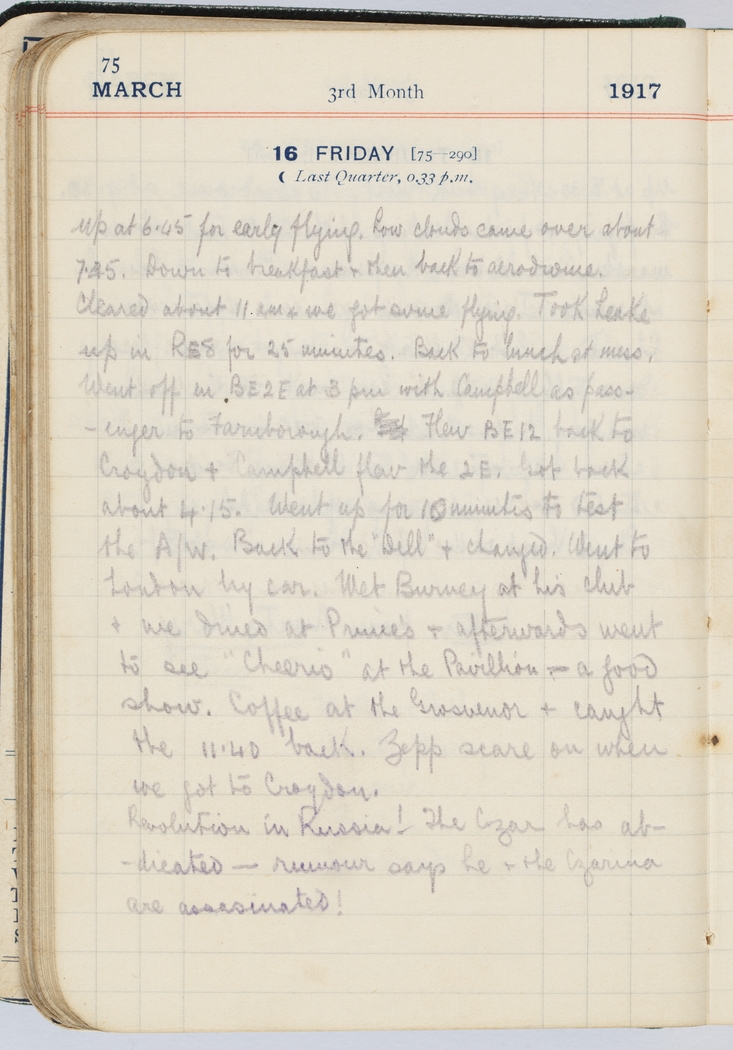 75
MARCH 3rd Month 1917
16 FRIDAY [75—290]
☾ Last Quarter, 0.33 p.m.
Up at 6.45 for early flying. Low clouds came over about
7.45. Down to breakfast + then back to aerodrome.
Cleared about 11 am + we got some flying. Took Leake
up in RE8 for 25 minutes. Back to lunch at mess.
Went off in BE2E at 3 pm with Campbell as pass-
-enger to Farnborough. Flew BE12 back to
Croydon + Campbell flew the 2E. Got back
about 4.15. Went up for 10 minutes to test
the A/W. Back to the "Dell" + changed. Went to
London by car. Met Burney at his club
+ we dined at Prince's + afterwards went
to see "Cheerio" at the Pavillion — a good
show. Coffee at the Grosvenor + caught
the 11.40 back. Zepp scare on when
we got to Croydon.
Revolution in Russia! The Czar has ab-
-dicated — rumour says he + the Czarina
are assasinated!